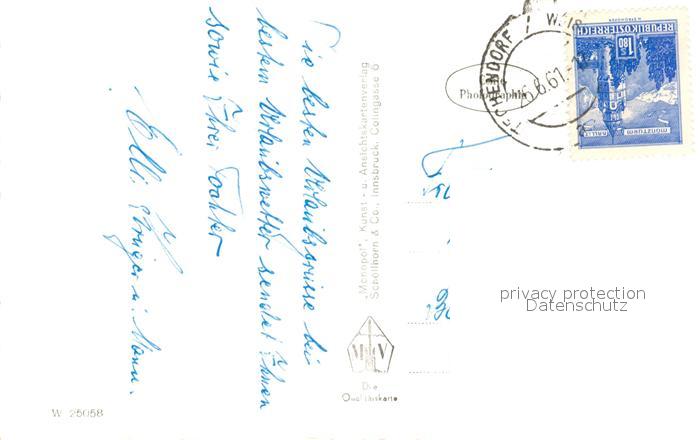 Die besten Urlaubsgrüsse bei
bestem Urlaubswetter sendet Ihnen
sowie Ihrer Tochter
Elli u. Mann.
"Monopol", Kunst- u. Ansichtskartenverlag
Schöllhorn & Co., Innsbruck, Colingasse 6
MKV
Die
Qualitätskarte
W 25058
Photographie
TECHENDORF
6.61
REPUBLIK ÖSTERREICH
1.80
S
MÜNZTURM
HALL I.T.
privacy protection
Datenschutz